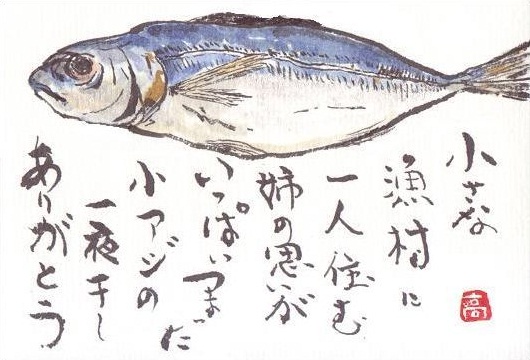 小さな
漁村に
一人住む
姉の思いが
いっぱいつまった
小アジの
一夜干し
ありがとう
高